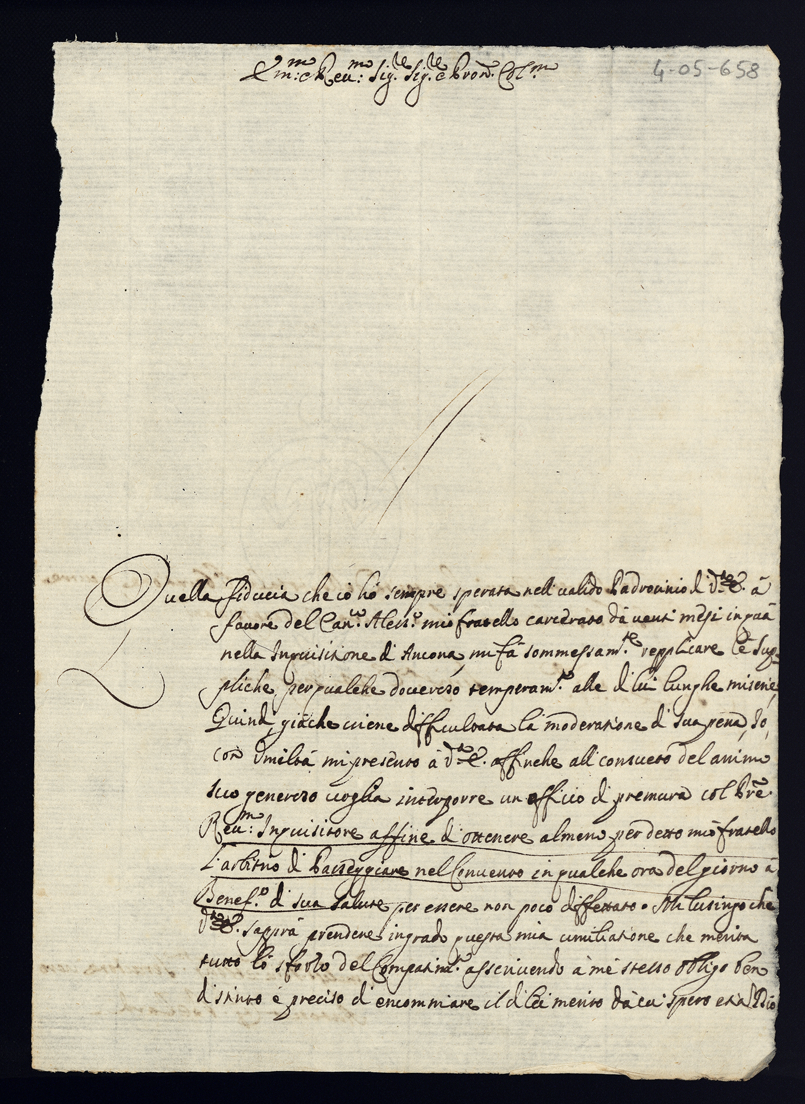 4-05-658
Em:mo e Reu:mo Sig:re Sig:re e Pron: Col:mo
Quella fiducia che iò hò sempre sperata nell valido Padrocinio di V:ra E. à
fauore del Can:co Aless:o mio fratello carcerato dà uenti mesi in quà
nella Inquisitione di Ancona, mi fà sommessam:te repplicare le sup=
pliche per qualche doueroso temperam:to alle di lui lunghe miserie,
Quindi giache uiene difficultata la moderatione di sua pena, Iò,
con Vmiltà mi presento à V:ra E. affinche all consueto del animo
suo generoso uoglia interporre un officio di premura col Pre
Reu:mo Inquisitore affine d'ottenere almeno per detto mio fratello
L'arbitrio di Passeggiare nel Conuento in qualche ora del giorno à
Benef:o di sua salute per essere non poco diffettato. Mi lusingo che
V:ra E. saprà prendere in grado questa mia umiliatione che merita
tutto lo sfoclo del Compatim:to asscriuendo à me stesso obligo ben
distinto e preciso di encommiare il di lei merito dà cui spero età Dio